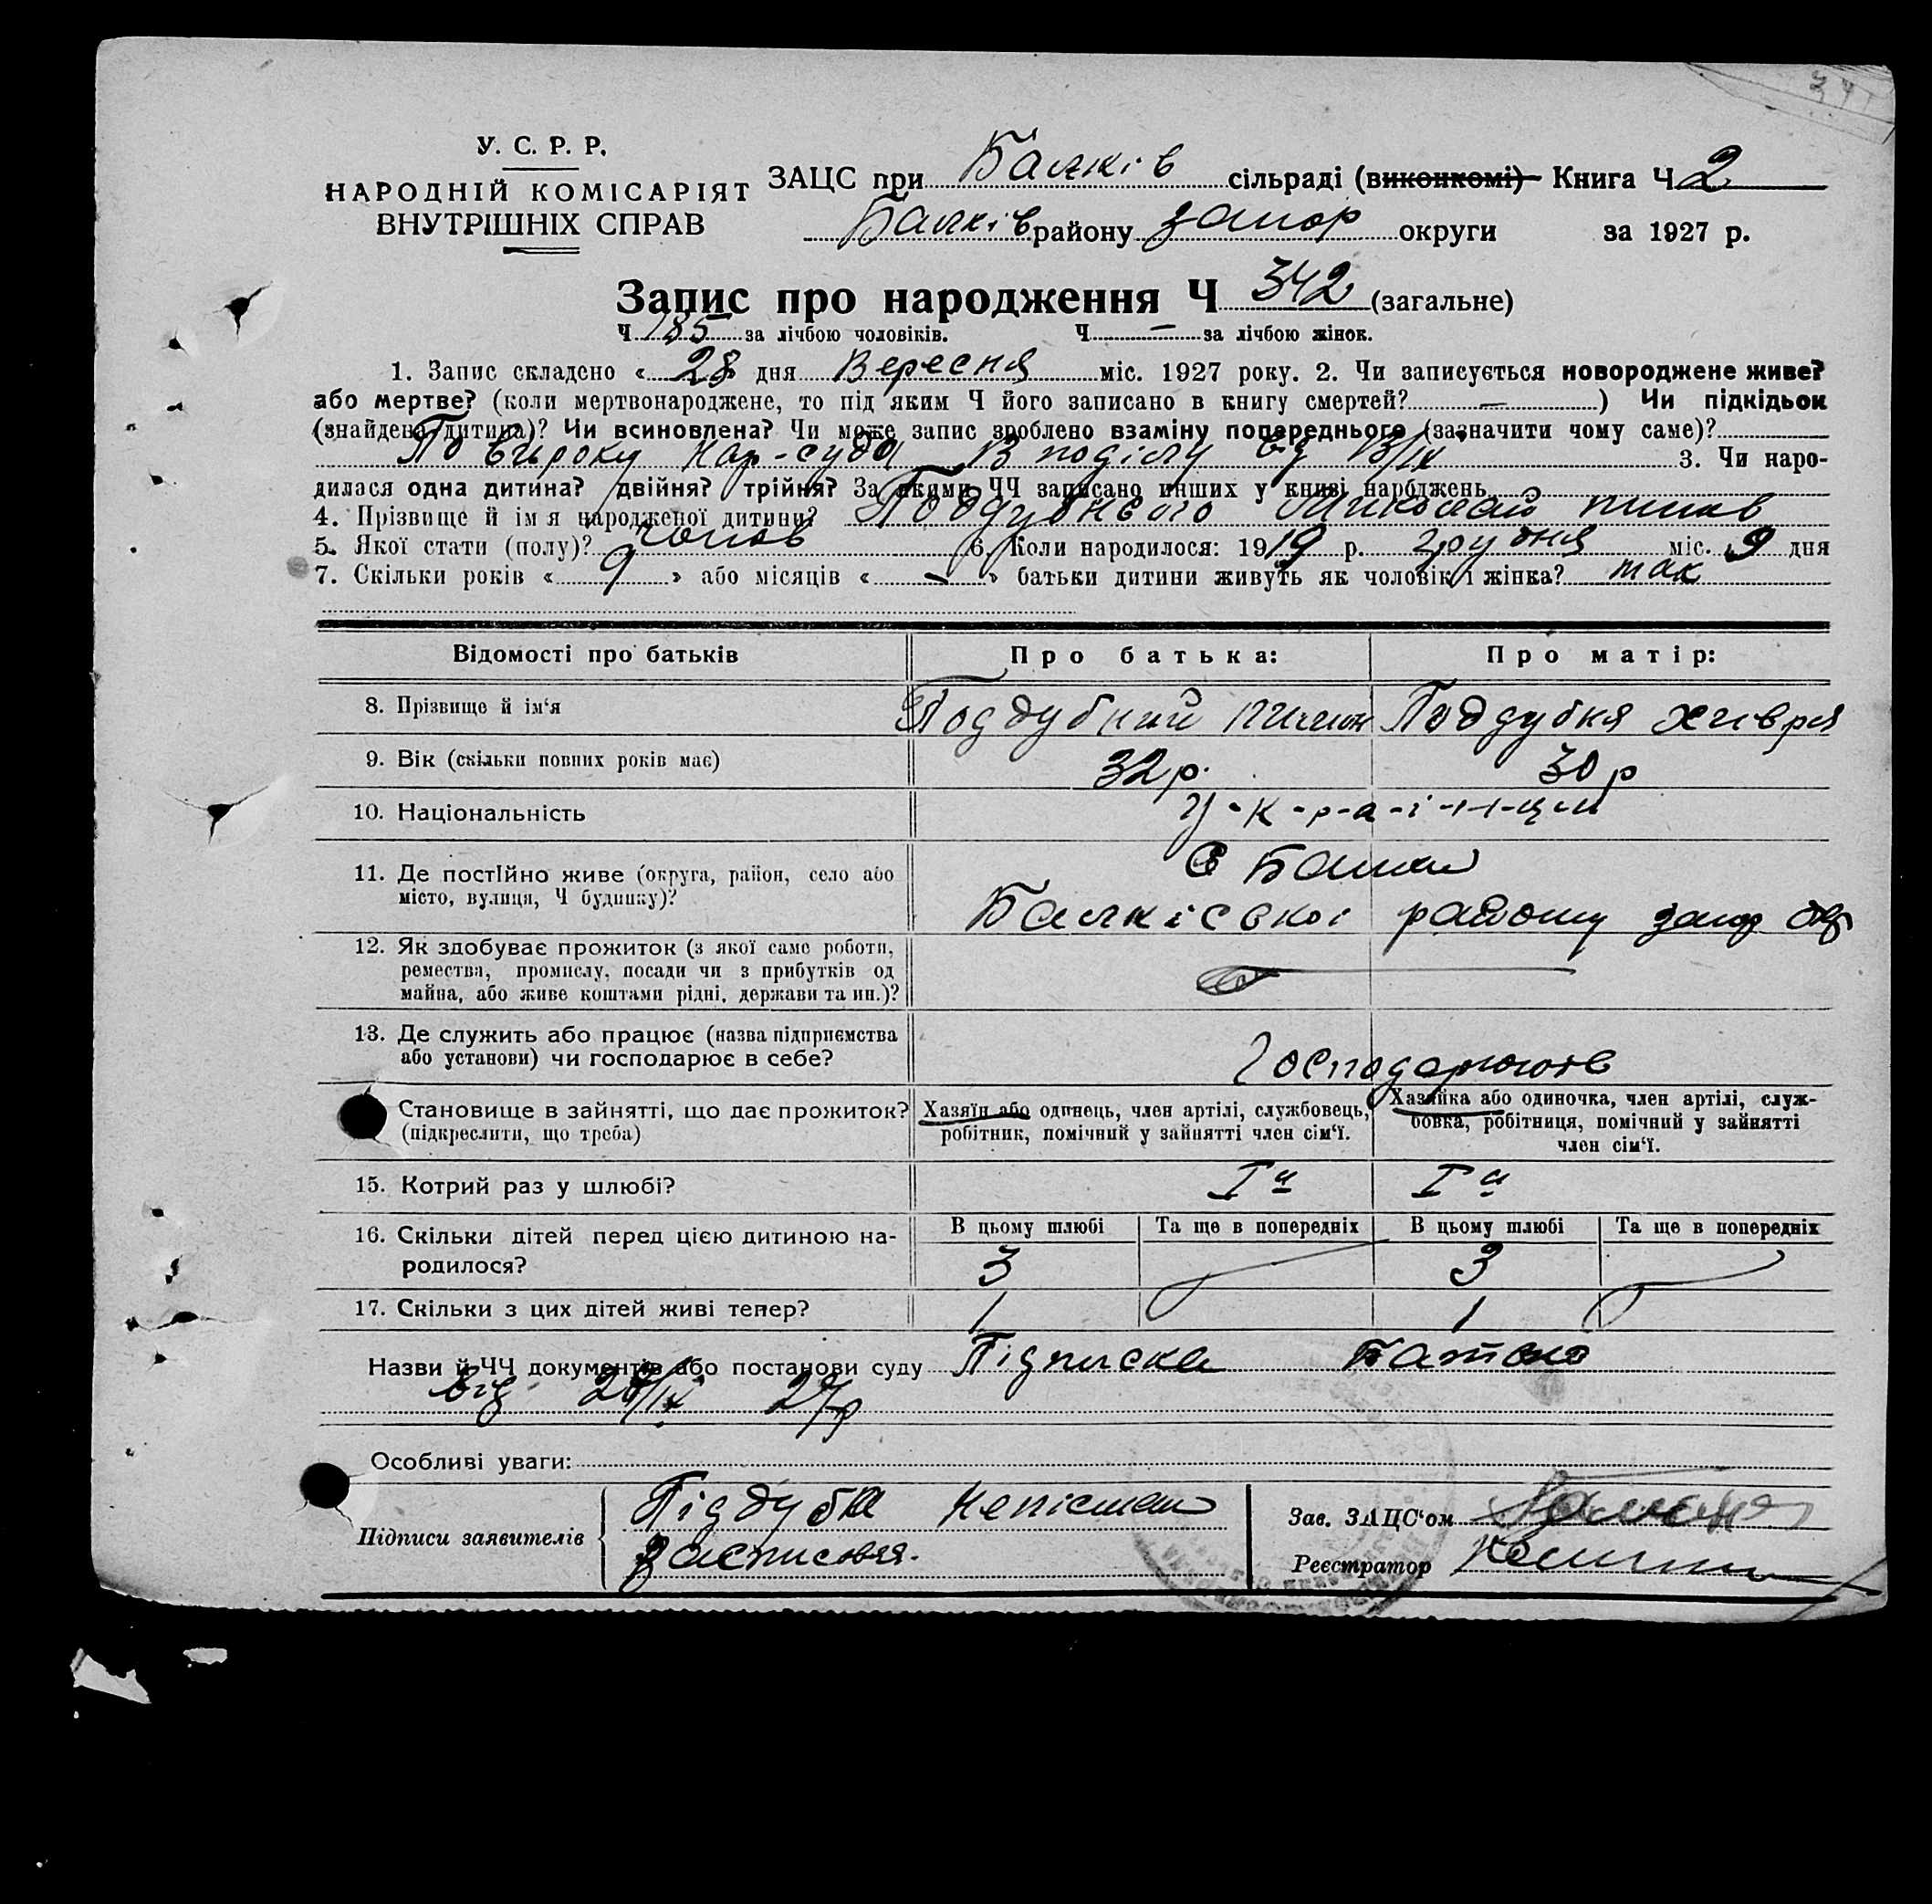 У. С. Р. Р.
НАРОДНІЙ КОМІСАРІЯТ
ВНУТРІШНІХ СПРАВ
ЗАЦС при Балків сільраді (виконкомі) Книга Ч 2
Балків району запор округи за 1927 р.
Запис про народження Ч 342 (загальне)
Ч 185 за лічбою чоловіків. Ч — за лічбою жінок.
1. Запис складено « 28 дня Вересня міс. 1927 року. 2. Чи записується новороджене живе?
або мертве? (коли мертвонароджене, то під яким Ч його записано в книгу смертей? — ) Чи підкідьок
(знайдена дитина)? Чи всиновлена? Чи може запис зроблено взаміну попереднього (зазначити чому саме)?
По вироку Нар-суда В поділу від 13/IX 3. Чи наро-
дилася одна дитина? двійня? трійня? За якими ЧЧ записано инших у книзі нарођжень
4. Прізвище й імя народженої дитини? Поддубнього Миколай
5. Якої стати (полу)? чолов 6. Коли народилося: 1919 р. грудня міс. 9 дня
7. Скільки років « 9 » або місяців « – » батьки дитини живуть як чоловік і жінка? так
Відомості про батьків Про батька: Про матір:
8. Прізвище й ім'я Поддубний Пилип Поддубня Хивря
9. Вік (скільки повних років має) 32 р. 30 р
10. Національність У-к-р-а-ї-н-ци
11. Де постійно живе (округа, район, село або С Балки
місто, вулиця, Ч будинку)? Балківскоі району запор окр
12. Як здобуває прожиток (з якої саме роботи,
ремества, промислу, посади чи з прибутків од
майна, або живе коштами рідні, держави та ин.)?
13. Де служить або працює (назва підприємства
або установи) чи господарює в себе? Господарюють
Становище в зайнятті, що дає прожиток? Хазяїн або одинець, член артілі, службовець, Хазяйка або одиночка, член артілі, служ-
(підкреслити, що треба) робітник, помічний у зайнятті член сім'ї. бовка, робітниця, помічний у зайнятті
член сім'ї.
15. Котрий раз у шлюбі? Iй Iй
16. Скільки дітей перед цією дитиною на- В цьому шлюбі Та ще в попередніх В цьому шлюбі Та ще в попередніх
родилося? 3 3
17. Скільки з цих дітей живі тепер? 1 1
Назви й ЧЧ документів або постанови суду Підписка Батька
від 28/IX 27р
Особливі уваги:
Підписи заявителів Підубня непісмен
Зав. ЗАЦС'ом
Реєстратор